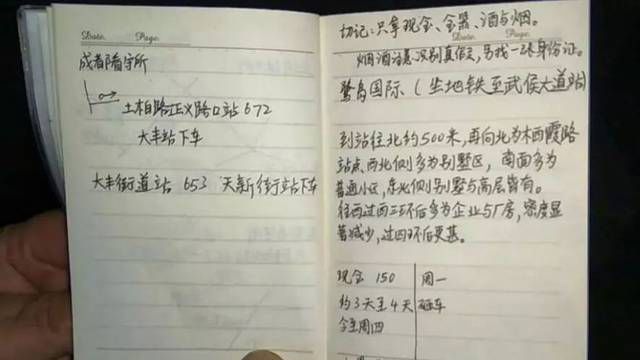 Date. Page.
成都看守所
土柏路正义路口站 672
大丰站下车
大丰街道站 653 天新街站下车
切记:只拿现金、金器、酒与烟。
烟酒注意识别真假,另找一张身份证。
鹭岛国际、(坐地铁至武侯大道站)
到站往北约500米,再向北为木西霞路
站点、西北侧多为别墅区,南面多为
普通小区,东北侧别墅与高层皆有。
往西过西三环后多为企业与厂房,密度显
著减少,过四环后更甚。
现金 150 周一
约3天至4天 砸车
今至周四